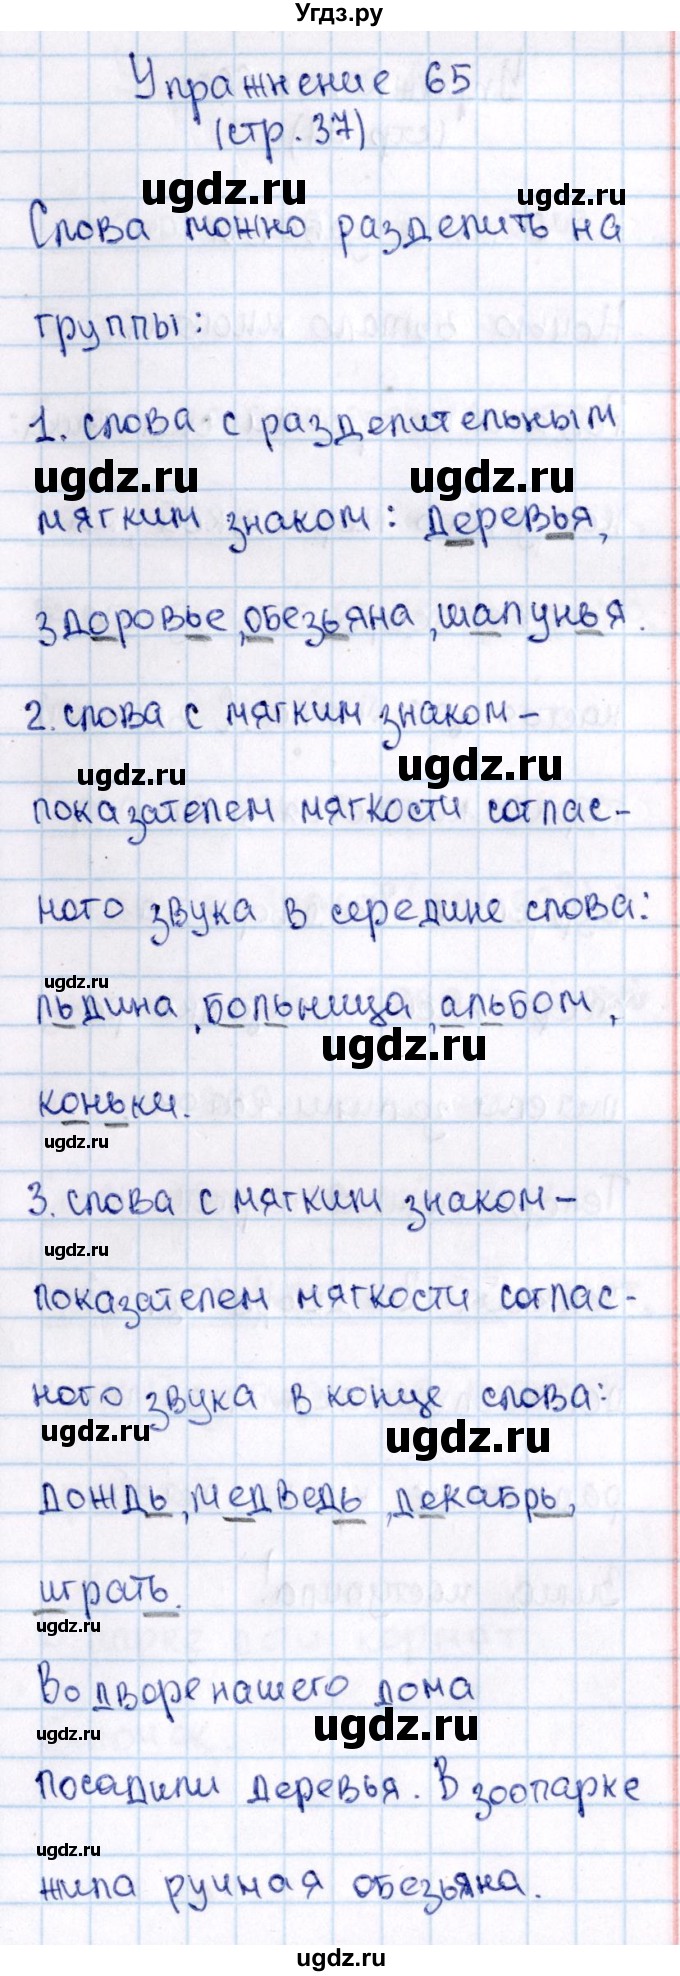 Угдз.ру
Упражнение 65
(стр. 37)
ugdz.ru ugdz.ru
Слова можно разделить на
группы:
1. слова с разделительным
ugdz.ru ugdz.ru
мягким знаком: деревья,
здоровье, обезьяна, шалунья.
2. слова с мягким знаком-
ugdz.ru ugdz.ru
показателем мягкости соглас-
ного звука в середине слова:
ugdz.ru
льдина, больница, альбом,
ugdz.ru
коньки.
ugdz.ru
3. слова с мягким знаком-
ugdz.ru
показателем мягкости соглас-
ного звука в конце слова:
ugdz.ru ugdz.ru
дождь, медведь, декабрь,
играть.
ugdz.ru
Во дворе нашего дома
ugdz.ru ugdz.ru
посадили деревья. В зоопарке
ugdz.ru
жила ручная обезьяна.
ugdz.ru